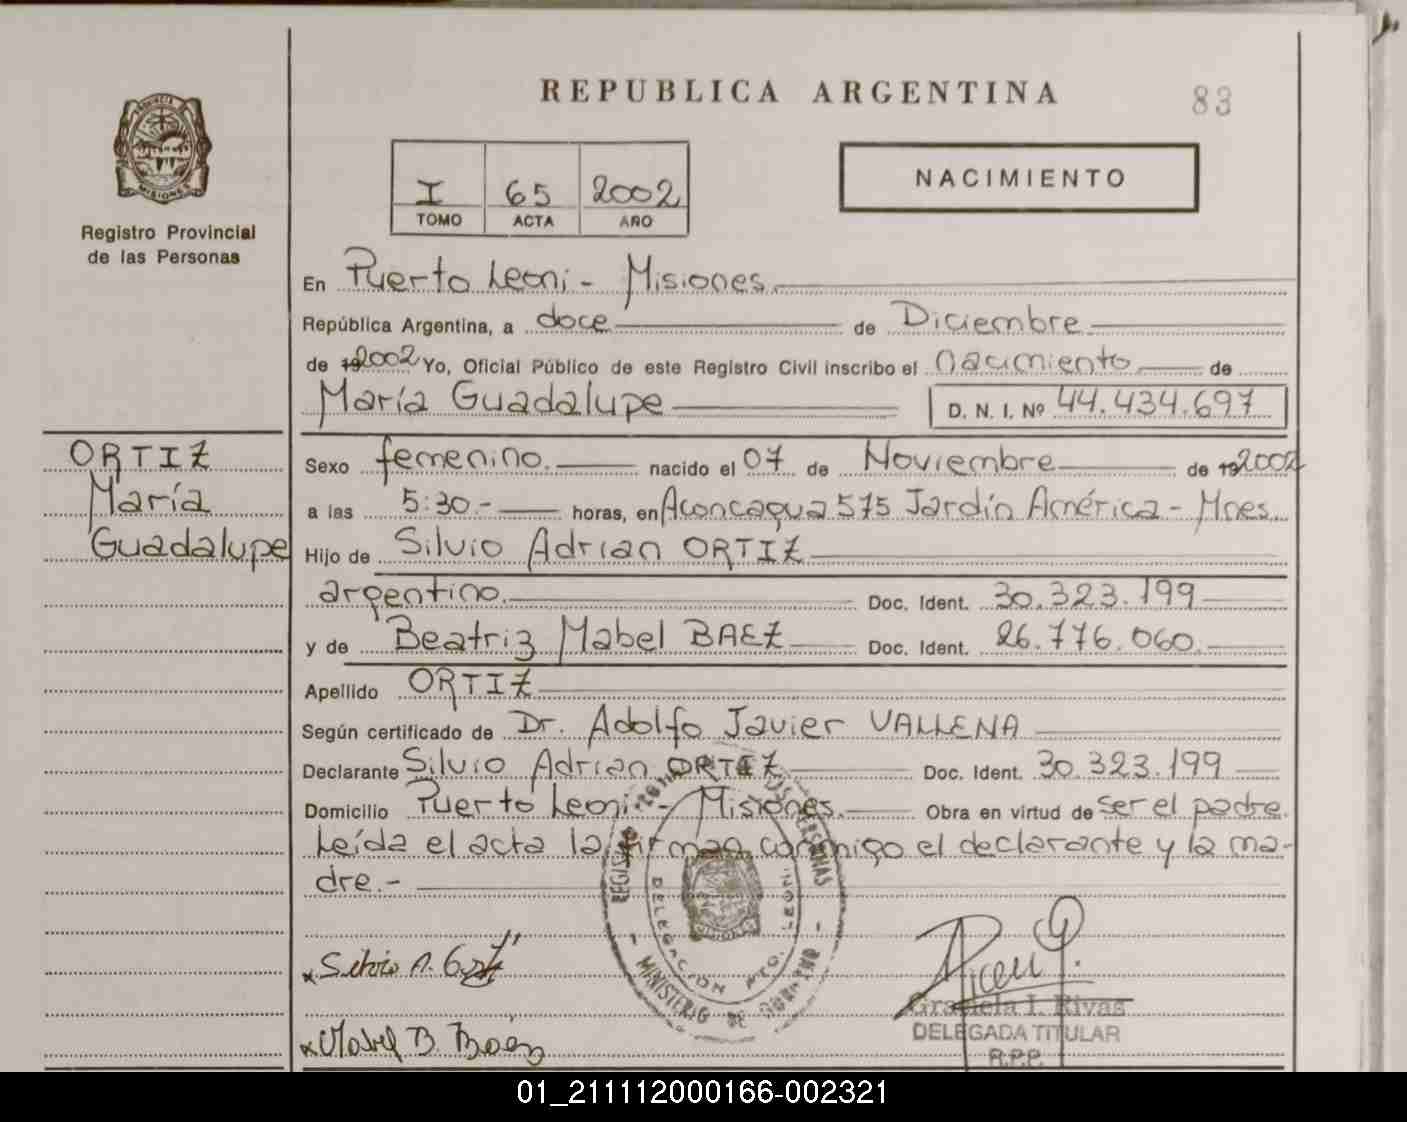 REPUBLICA ARGENTINA
83
PROVINCIA DE MISIONES
Registro Provincial
de las Personas
I 65 2002
TOMO ACTA AÑO
NACIMIENTO
En Puerto Leoni - Misiones.
República Argentina, a doce de Diciembre
de 192002 Yo, Oficial Público de este Registro Civil inscribo el nacimiento de
María Guadalupe D. N. I. Nº 44.434.697
ORTIZ
María
Guadalupe
Sexo femenino. nacido el 07 de Noviembre de 192002
a las 5:30.- horas, en Aconcagua 575 Jardín América - Mnes.
Hijo de Silvio Adrian ORTIZ
argentino. Doc. Ident. 30.323.199
y de Beatriz Mabel BAEZ Doc. Ident. 26.776.060.
Apellido ORTIZ
Según certificado de Dr. Adolfo Javier VALLENA
Declarante Silvio Adrian ORTIZ Doc. Ident. 30.323.199
Domicilio Puerto Leoni - Misiones. Obra en virtud de ser el padre.
Leída el acta la firman conmigo el declarante y la ma-
dre.-
REGISTRO PERSONAS
DELEGACION PTO. LEONI
- MINISTERIO DE GOBIERNO -
x Silvio A. Ortiz
x Mabel B. Báez
Graciela I. Rivas
DELEGADA TITULAR
R.P.P.
01_211112000166-002321